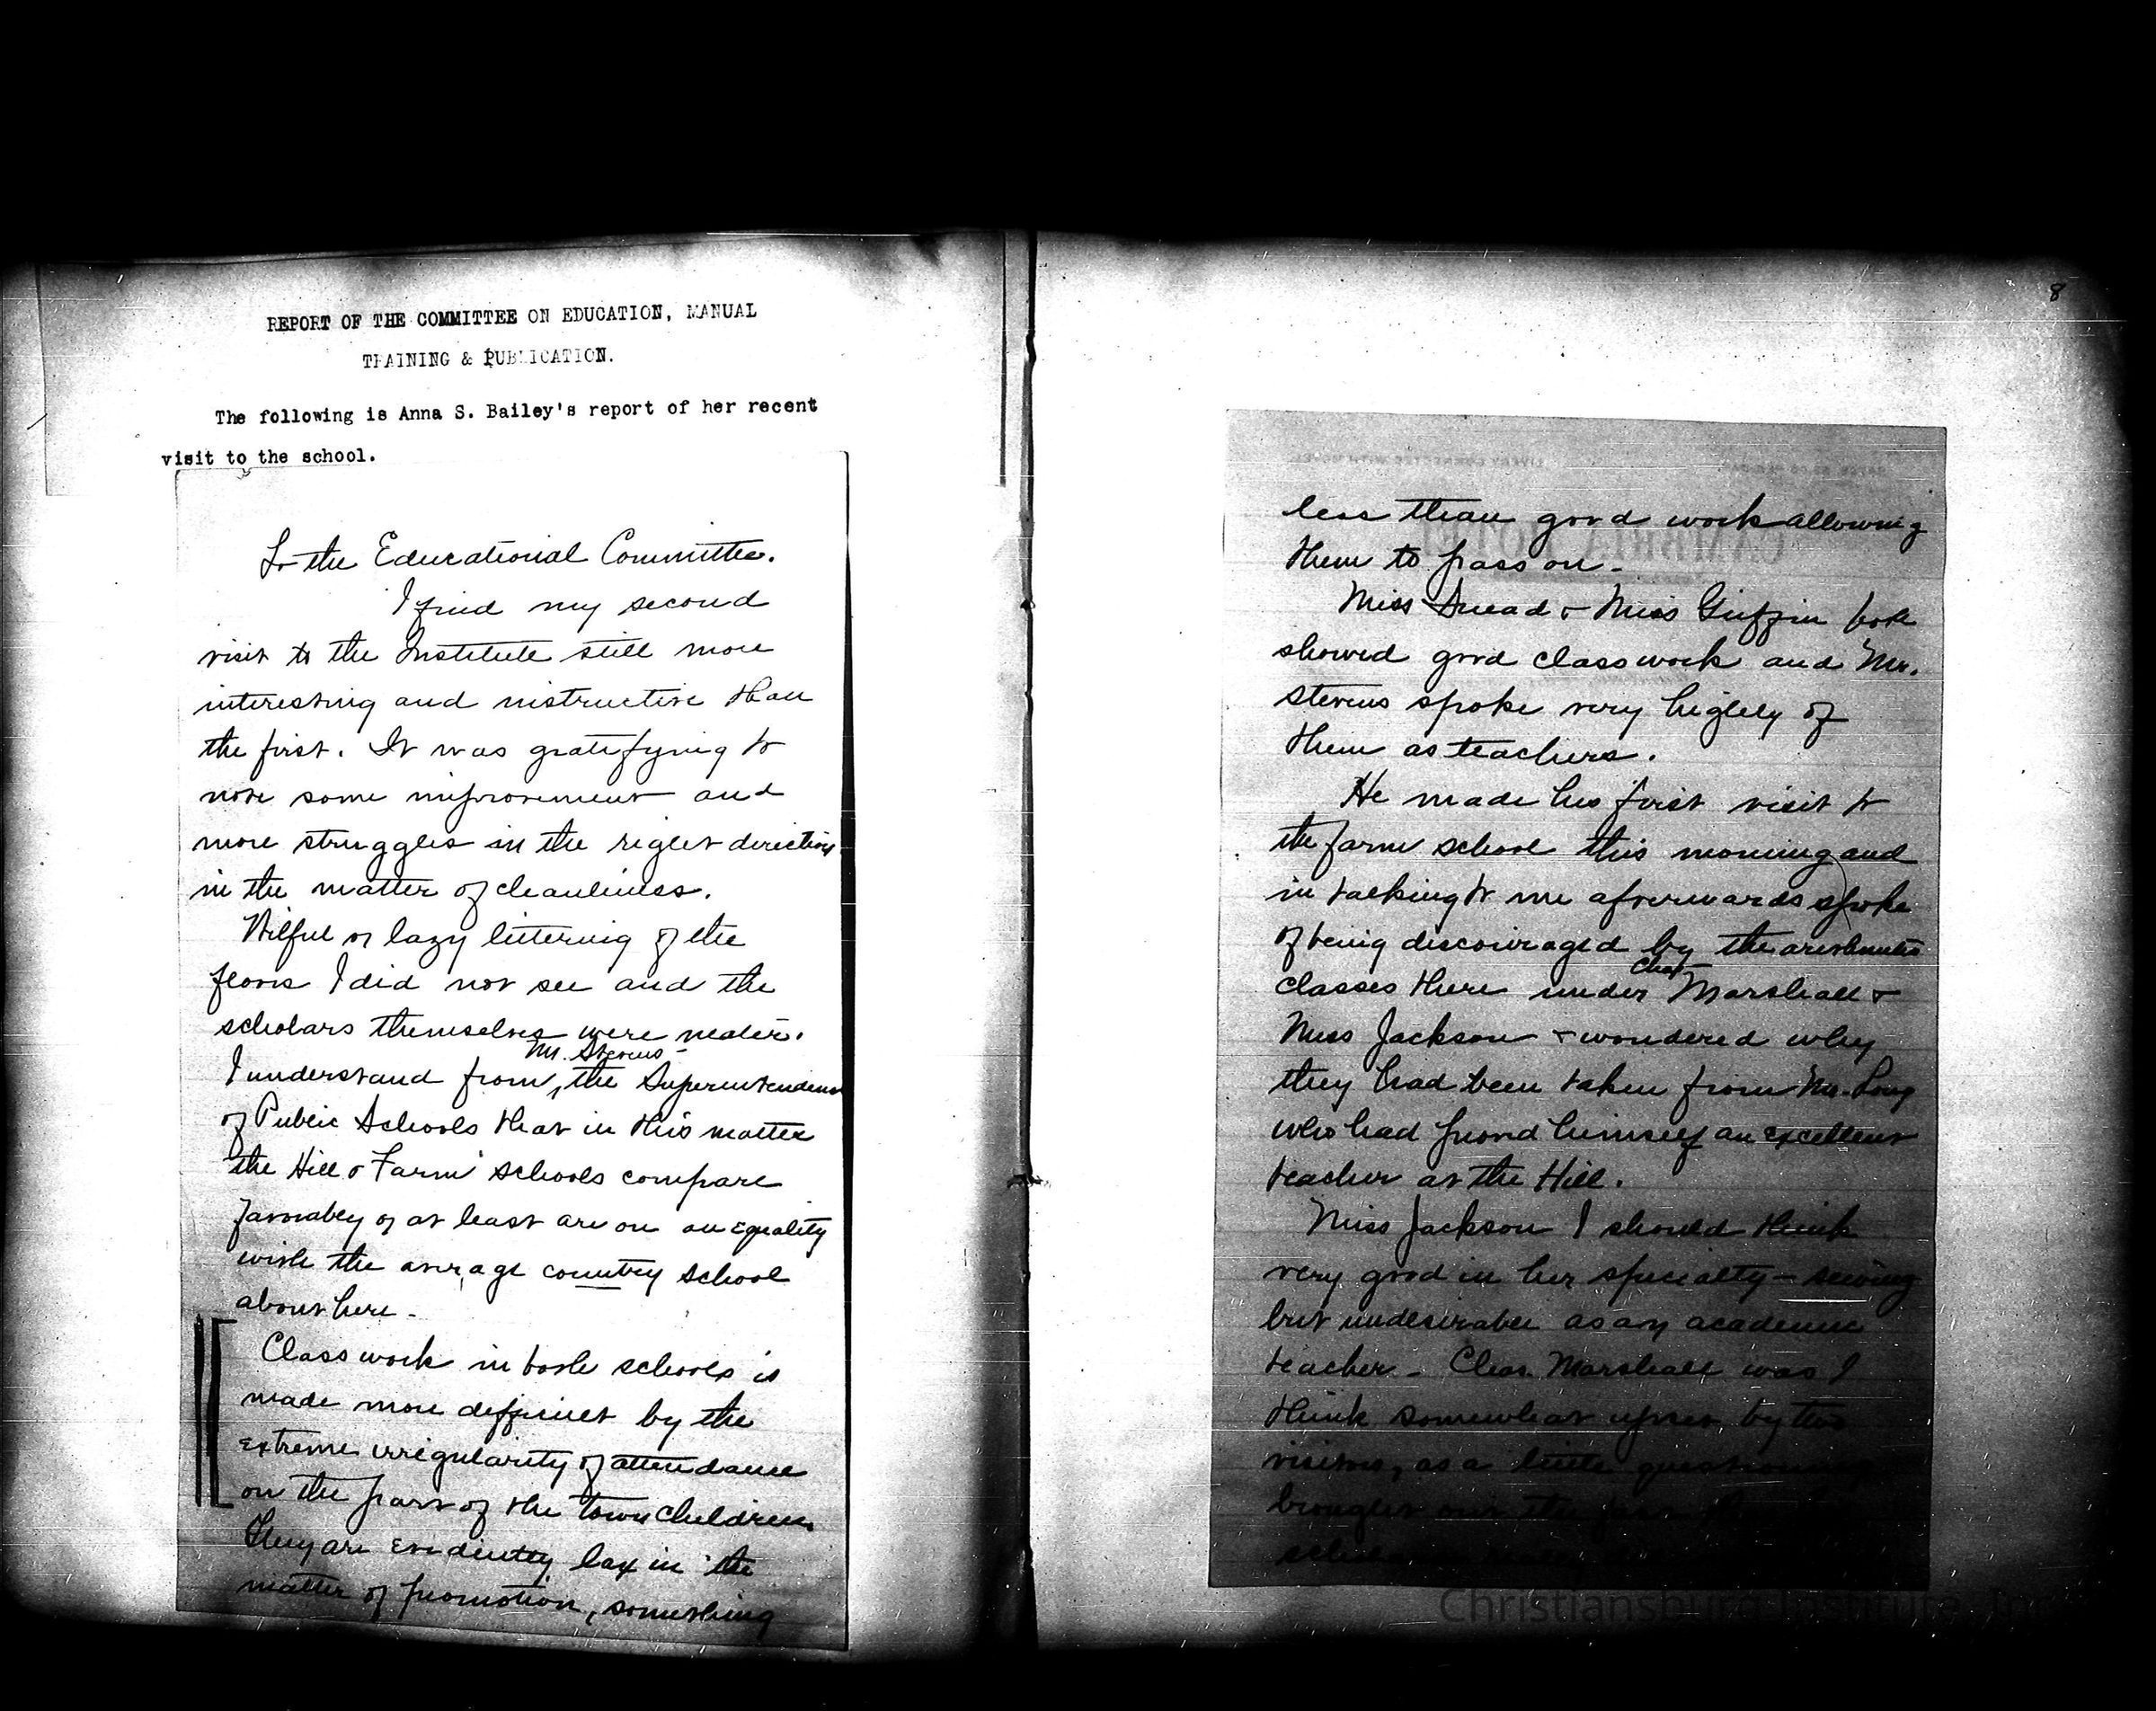 REPORT OF THE COMMITTEE ON EDUCATION, MANUAL
TRAINING & PUBLICATION.
The following is Anna S. Bailey's report of her recent
visit to the school.
To the Educational Committee.
I find my second
visit to the Institute still more
interesting and instructive than
the first. It was gratifying to
note some improvement and
more struggles in the right direction
in the matter of cleanliness.
Wilful or lazy littering of the
floors I did not see and the
scholars themselves were neater.
Mr. Stevens -
I understand from, the Superintendent
of Public Schools that in this matter
the Hill & Farm schools compare
favorably or at least are on an equality
with the average country school
about here -
Class work in both schools is
made more difficult by the
extreme irregularity of attendance
on the part of the town children.
They are evidently lax in the
matter of promotion, something
8
less than good work allowing
them to pass on -
Miss Snead & Miss Griffin both
showed good class work and Mr.
Stevens spoke very highly of
them as teachers.
He made his first visit to
the farm school this morning and
in talking to me afterwards spoke
of being discouraged by the arithmetic
Chas
classes there under Marshall &
Miss Jackson & wondered why
they had been taken from Mr. Long
who had proved himself an excellent
teacher at the Hill.
Miss Jackson I should think
very good in her specialty - sewing
but undesirable as an academic
teacher - Chas. Marshall was I
think somewhat upset by two
visitors, as a little questioning
brought out the fact
Christiansburg Institute, Inc